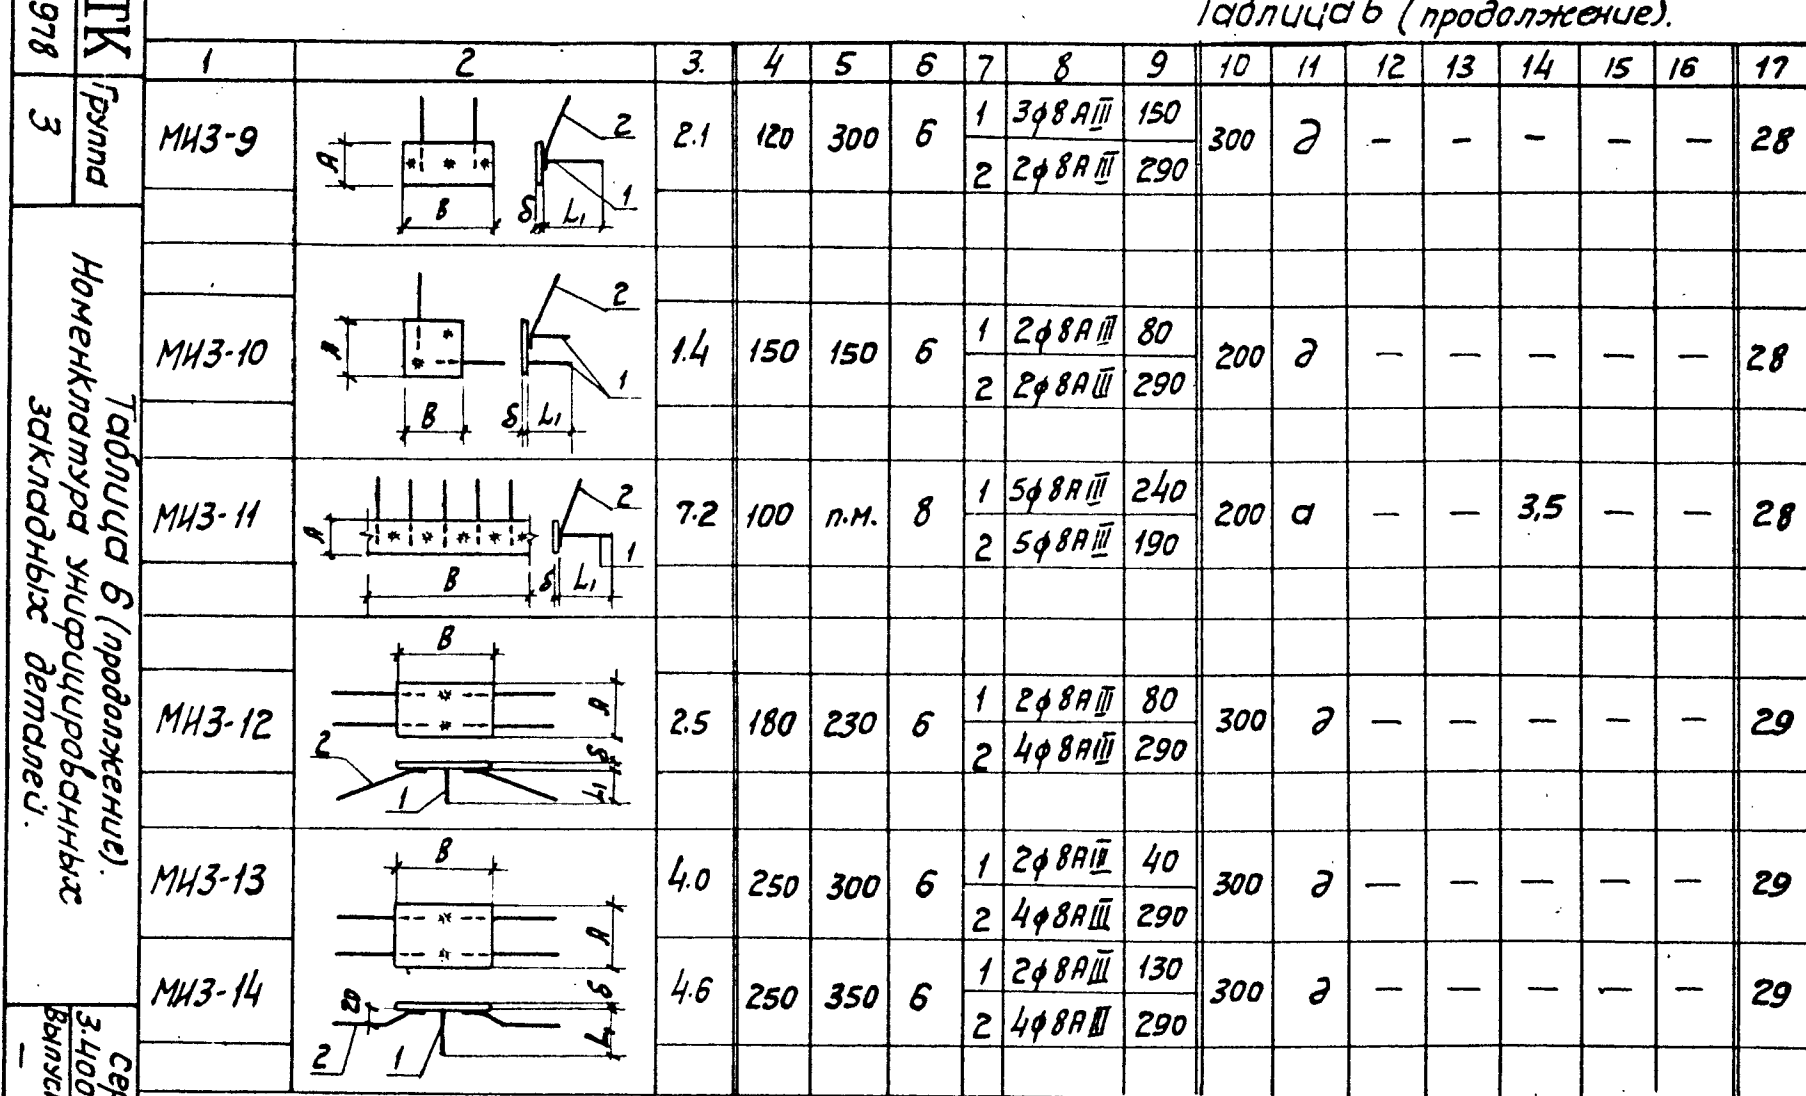 Таблица 6 (продолжение).
1 2 3. 4 5 6 7 8 9 10 11 12 13 14 15 16 17
МИ3-9 2.1 120 300 6 1 3ϕ8АIII 150 300 д — — — — — 28
2 2ϕ8АIII 290
А В δ L₁ 2 1
МИ3-10 1.4 150 150 6 1 2ϕ8АIII 80 200 д — — — — — 28
2 2ϕ8АIII 290
В δ L₁ 2 1
МИ3-11 7.2 100 п.м. 8 1 5ϕ8АIII 240 200 а — — 3,5 — — 28
2 5ϕ8АIII 190
А В δ L₁ 2 1
МИ3-12 2.5 180 230 6 1 2ϕ8АIII 80 300 д — — — — — 29
2 4ϕ8АIII 290
В А δ L₁ 2 1
МИ3-13 4.0 250 300 6 1 2ϕ8АIII 40 300 д — — — — — 29
2 4ϕ8АIII 290
МИ3-14 4.6 250 350 6 1 2ϕ8АIII 130 300 д — — — — — 29
2 4ϕ8АIII 290
В А δ 2 1
ТК
978
Группа
3
Таблица 6 (продолжение).
Номенклатура унифицированных
закладных деталей.
Сер
3.400
Выпуск
—